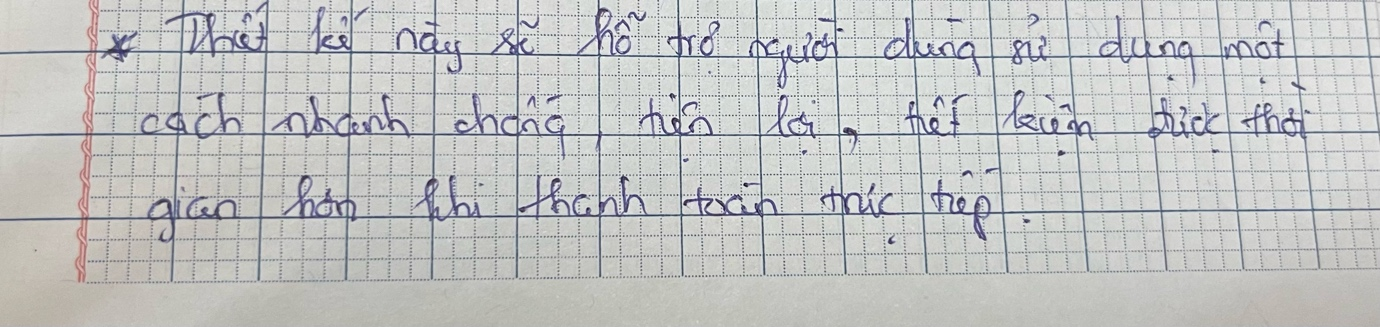 * Thiết kế này sẽ hỗ trợ người dùng sử dụng một
cách nhanh chóng, tiện lợi, tiết kiệm được thời
gian hơn khi thanh toán trực tiếp.